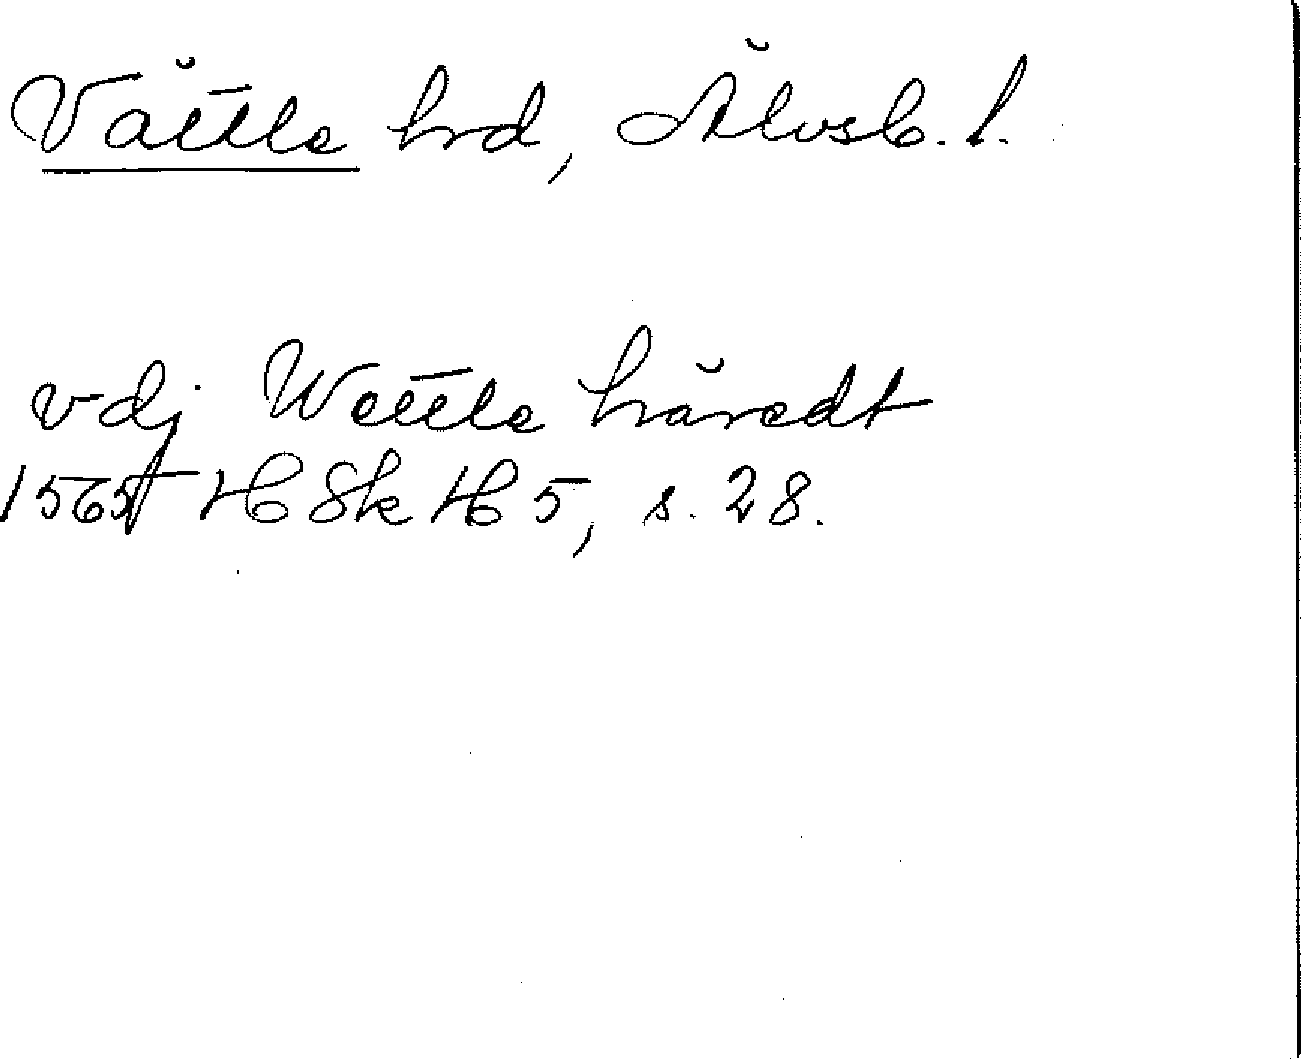 Vättle hrd, Älvsb. l.
vdj Wettle häredt
1565 HSkH 5, s. 28.